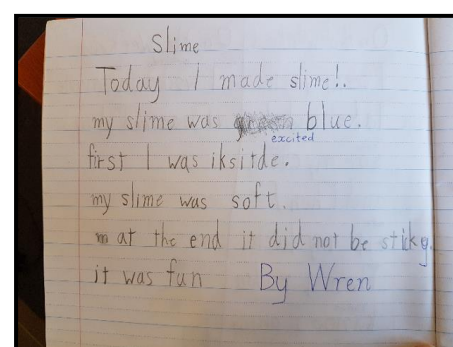 Slime
Today I made slime!.
my slime was green blue.
excited
first I was iksitde.
my slime was soft.
m at the end it did not be sticky.
it was fun By Wren